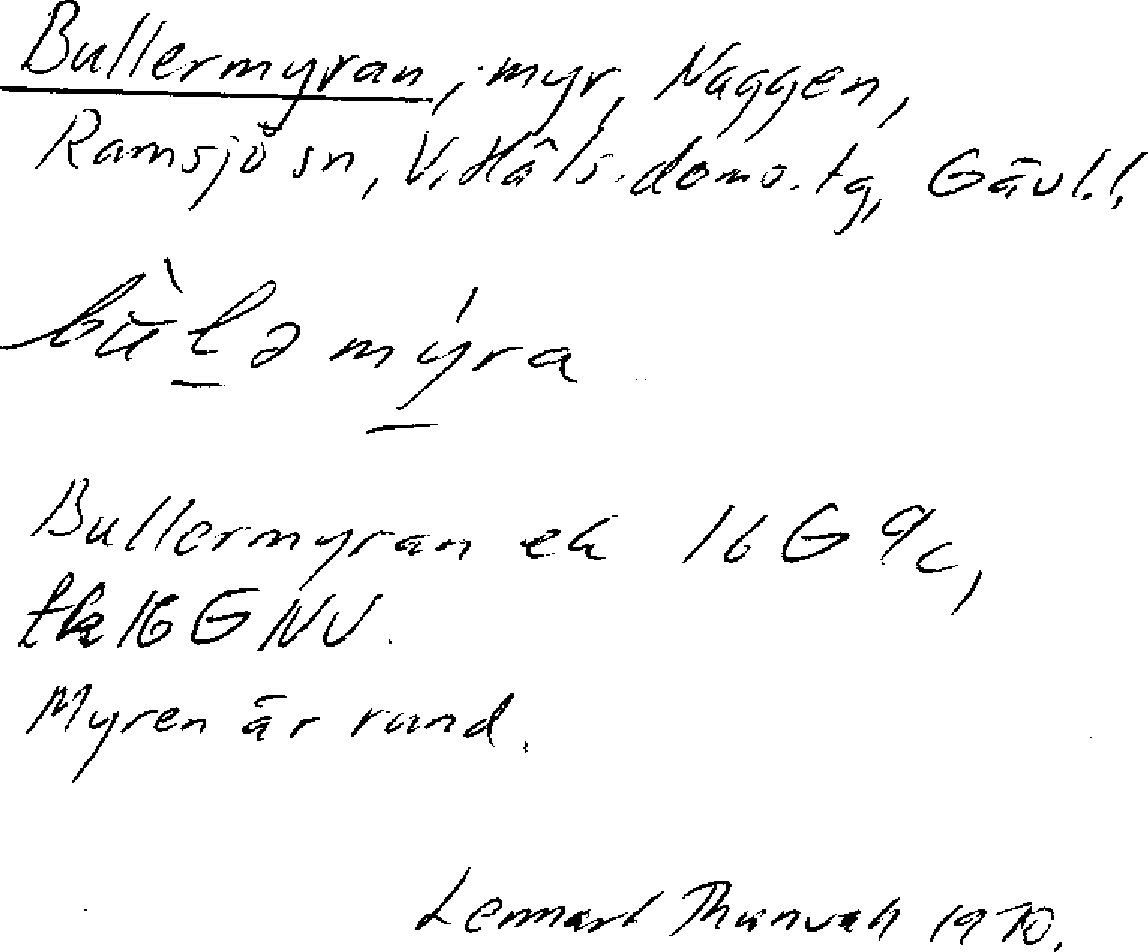 Bullermyran, myr, Naggen,
Ramsjö sn, V. Häls. doms. tg, Gävl. l.
bùlə mýra
Bullermyran ek 16 G 9c,
tk 16 G NV.
Myren är rund.
Lennart 1970.